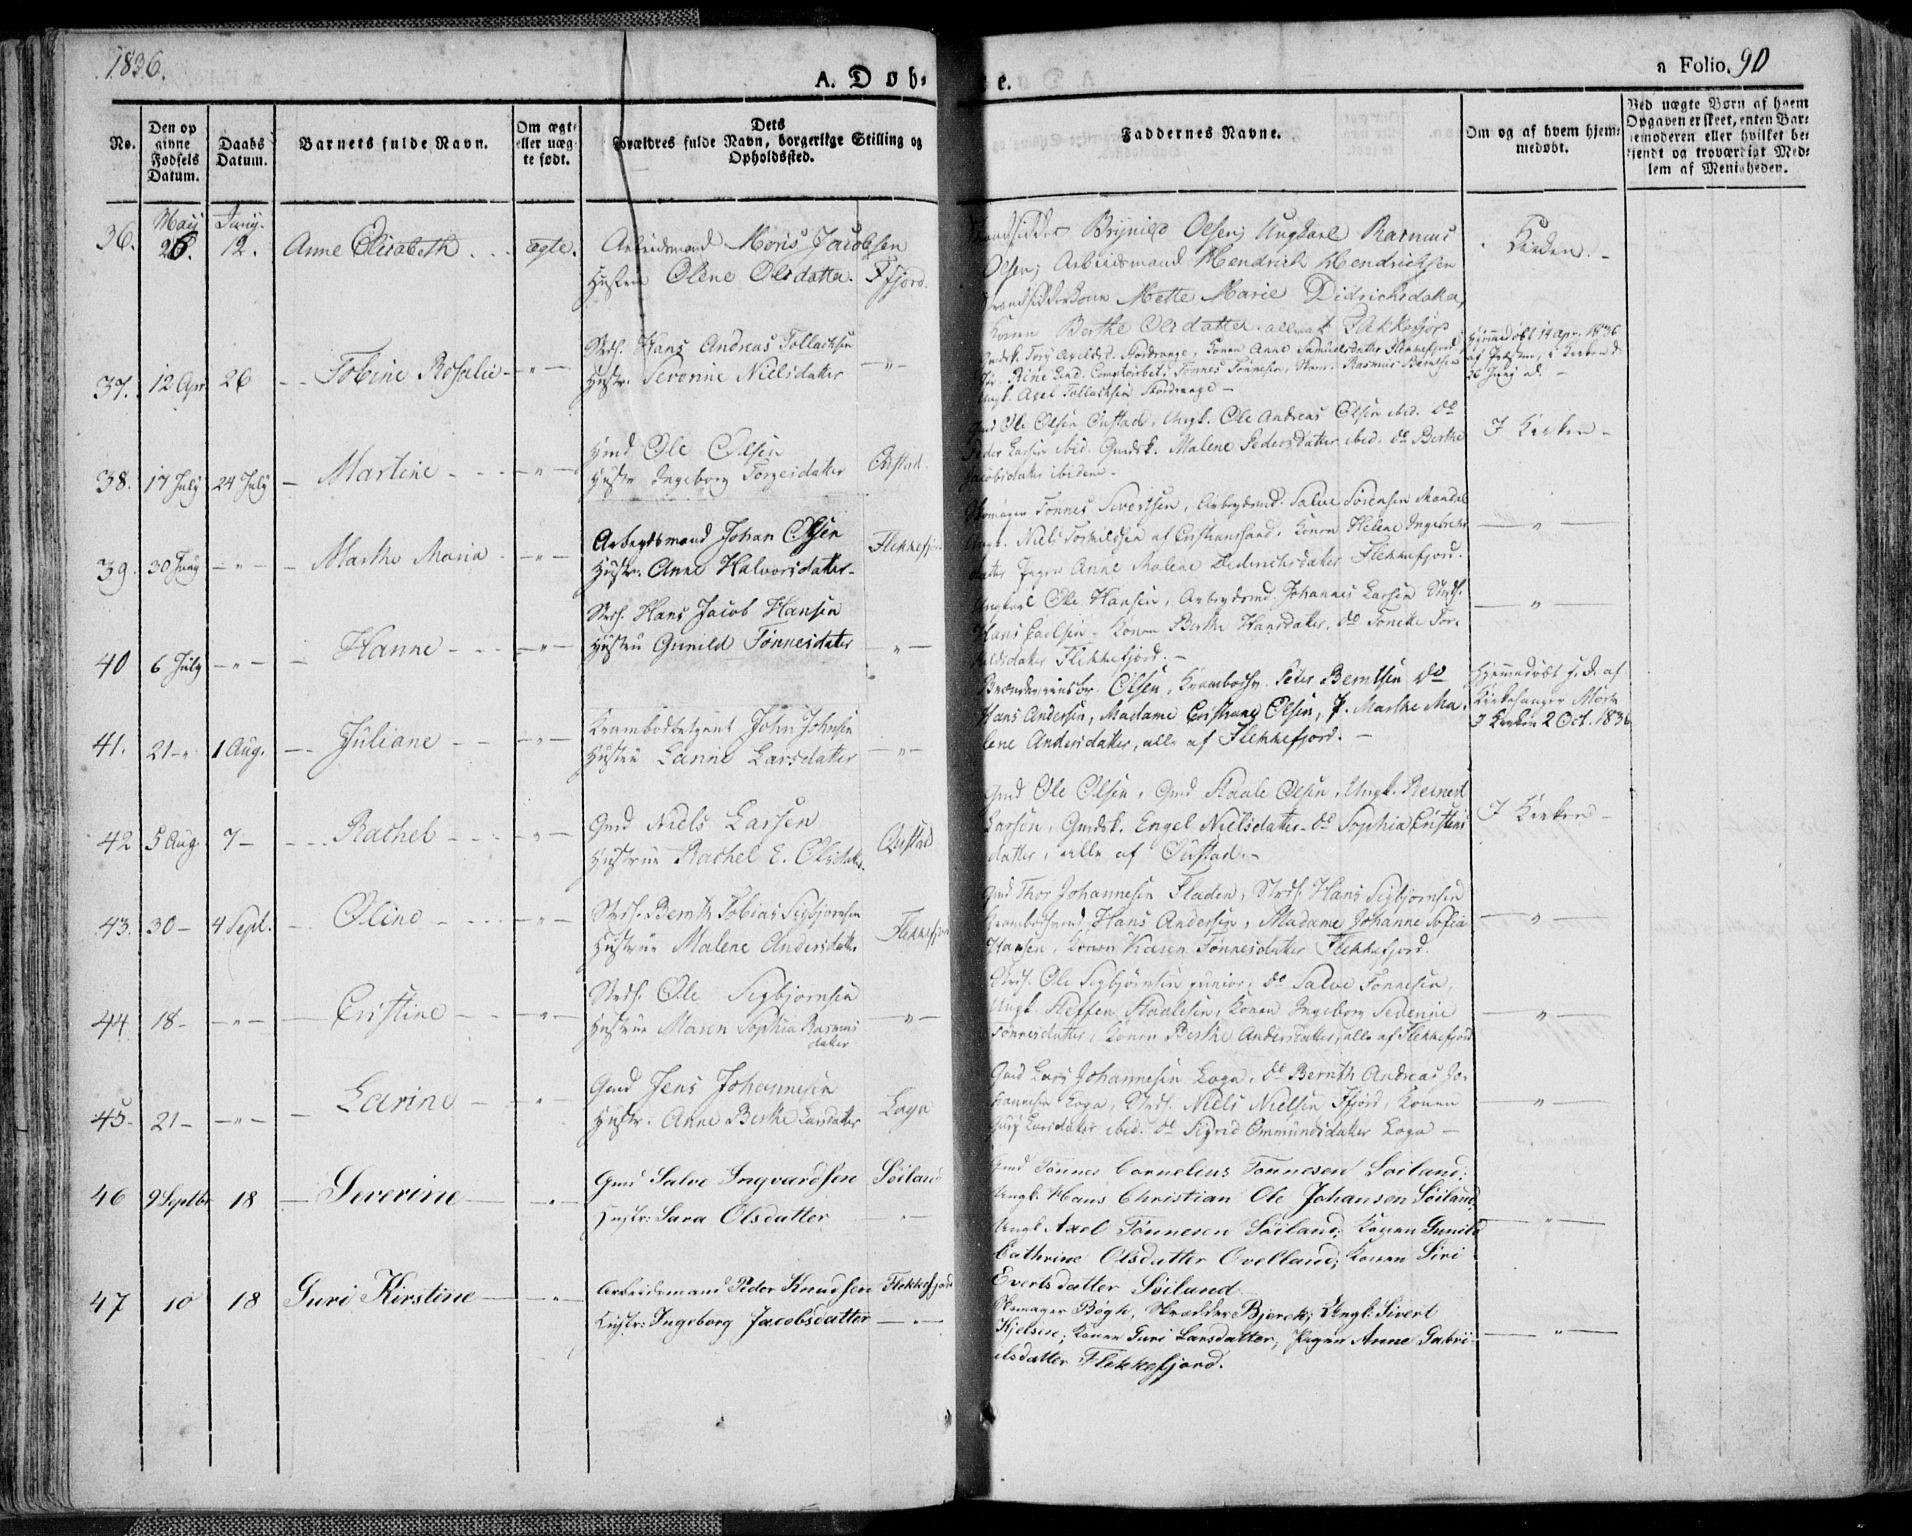 1836.
A. Døb-
e.
a Folio. 90
No.
Den op
givne
Fødsels
Datum.
Daabs
Datum.
Barnets fulde Navn.
Om ægte
eller uæg
te født.
Dets
Forældres fulde Navn, borgerlige Stilling og
Opholdssted.
Faddernes Navne.
Om og af hvem hjem-
medøbt.
Ved uægte Børn af hvem
Opgaven er skeet, enten Bar-
nemoderen eller hvilket be-
kjendt og troværdigt Med-
lem af Menigheden.
36. May 26. Juny. 12. Anne Elisabeth ægte.
Arbeidsmand Moris Jacobsen
Hustru Oline Olsdatter. Ffjord.
Strandsidder Brynild Olsen; Ungkarl Rasmus
Olsen; Arbeidsmand Hendrich Hendrichsen
Strandsidderkone Mette Marie Didrichsdatter,
Konen Berthe Olsdatter
Kirken.
37. 12 Apr 26 Tobine Rosalie
Strds. Hans Andreas Tollachsen
Hustr. Seronne Nielsdatter
Konen Anne Samuelsdatter Flekkefjord
Tønnes Tønnesen, Rasmus Berntsen
Ungk. Axel Tollachsen
Hjemmedøbt 14 Apr. 1836
af Præsten, i Kirken d.
26 Juny
38. 17 July 24 July Martine
Gmd Ole Olsen
Hustr Ingeborg Torgersdatter
Gmd Ole Olsen, Ungk. Ole Andreas Olsen ibid. do
Peder Larsen ibid. Malene Pedersdatter ibid. do Berthe
Jacobsdatter ibidem
I Kirken
39. 30 July Marthe Maria
Arbeydsmand Johan Olsen
Hustr: Anne Halvorsdatter Flekkefjord
Skomager Tønnes Sivertsen, Arbeydsmd. Salve Sørensen
Ungk. Niels Torkildsen af Cristiansand, Konen Helene Ingebrets
datter Pigen Anne Malene Diderichsdatter Flekkefjord.
40 6 July Hanne
Strds. Hans Jacob Hansen
Hustru Gunild Tønnesdatter
Ungkarl Ole Hansen, Arbeydsmd Johannes Larsen Strds.
Hans Carlsen Konen Berthe Hansdatter, do
Flekkefjord.
41. 21 1 Aug. Juliane
Krambodbetjent John Johnsen
Hustru Lanne Larsdatter
Olsen, Peter Berntsen do
Hans Andersen, Madame Cristiane Olsen, P. Marthe Ma-
lene Andersdatter, alle af Flekkefjord.
Hjemmedøbt s. D. af
Kirkesanger
I Kirken 2 Oct. 1836
42 5 Aug. 7 Rachel
Gmd Niels Larsen
Hustrue Rachel E. Olsdatter
Gmd Ole Olsen, Gmd Staale Olsen, Ungk. Reinert
Larsen, Engel Nielsdatter do Sophia Cristens
datter, alle af
I Kirken
43. 30 4 Sept. Oline
Strds. Bernth Tobias Sigbjørnsen
Hustrue Malene Andersdatter Flekkefjord
Gmd Thor Johannesen Fladen, Strds. Hans Sigbjørnsen
Hans Andersen, Madame Johanne Sofia
Hansen, Konen Karen Tønnesdatter Flekkefjord.
44. 18 Cristine
Strds. Ole Sigbjørnsen
Hustrue Maren Sophia Rasmus
datter
Strds. Ole Sigbjørnsen junior, do Salve Tønnesen,
Ungk. Steffen Staalesen, Konen Ingeborg
Tønnesdatter, Konen Berthe Andersdatter, alle af Flekkefjord
45. 21 Larine
Gmd Jens Johannesen
Hustr. Anne Berthe Larsdatter Loga
Gmd Lars Johannesen Loga, do Bernth Andreas Jo-
hannesen Loga, Strds. Niels Nielsen Ffjord, Konen
Larsdatter ibid. do Sigrid Ommundsdatter Loga
46 9 Septbr 18 Severine
Gmd Salve Ingvardsen Søiland
Hustr: Sara Olsdatter
Gmd Tønnes Cornelius Tønnesen Søiland;
Ungk. Hans Christian Ole Johansen Søiland,
Ungk. Axel Tønnesen Søiland; Konen Gunild
Cathrine Olsdatter Ovelland; Konen Siri
Evertsdatter Søiland
47 10 18 Guri Kirstine
Arbeidsmand Peder Knudsen Flekkefjord
Hustr: Ingeborg Jacobsdatter
Skomager Bøgh, Skrædder Bjerck; Ungk. Sivert
Kjelsen; Konen Guri Larsdatter; Pigen Anne Gabri-
elsdatter Flekkefjord.